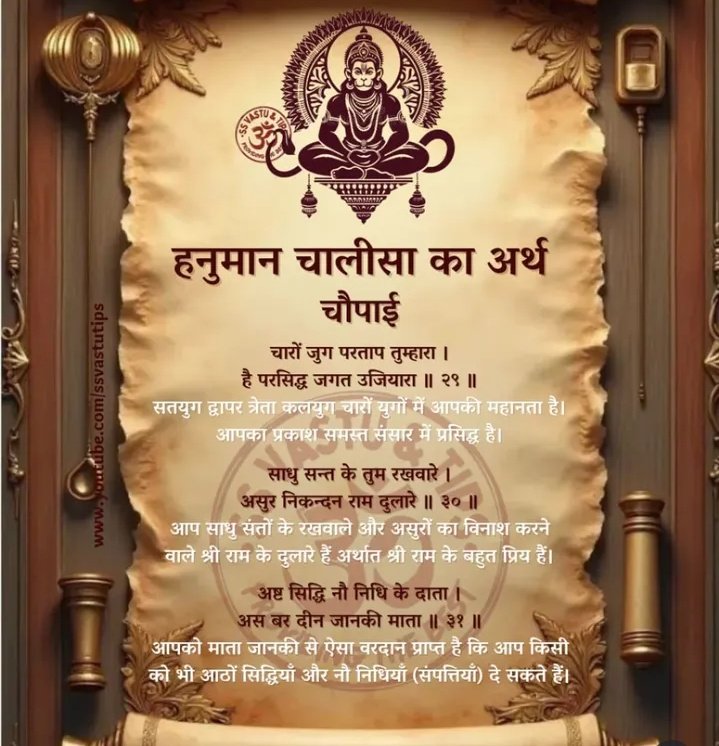 SS VASTU & TIPS
हनुमान चालीसा का अर्थ
चौपाई
चारों जुग परताप तुम्हारा ।
है परसिद्ध जगत उजियारा ॥ २९ ॥
सतयुग द्वापर त्रेता कलयुग चारों युगों में आपकी महानता है।
आपका प्रकाश समस्त संसार में प्रसिद्ध है।
साधु सन्त के तुम रखवारे ।
असुर निकन्दन राम दुलारे ॥ ३० ॥
आप साधु संतों के रखवाले और असुरों का विनाश करने
वाले श्री राम के दुलारे हैं अर्थात श्री राम के बहुत प्रिय हैं।
अष्ट सिद्धि नौ निधि के दाता ।
अस बर दीन जानकी माता ॥ ३१ ॥
आपको माता जानकी से ऐसा वरदान प्राप्त है कि आप किसी
को भी आठों सिद्धियाँ और नौ निधियाँ (संपत्तियाँ) दे सकते हैं।
www.youtube.com/ssvastutips